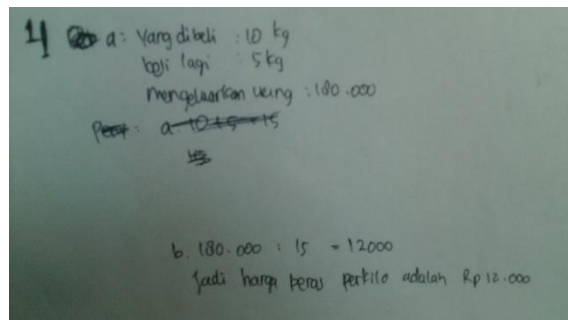 4 a: Yang dibeli : 10 kg
beli lagi : 5 kg
mengeluarkan uang : 180.000
a. 10 + 5 = 15
b. 180.000 : 15 = 12000
Jadi harga beras perkilo adalah Rp 12.000